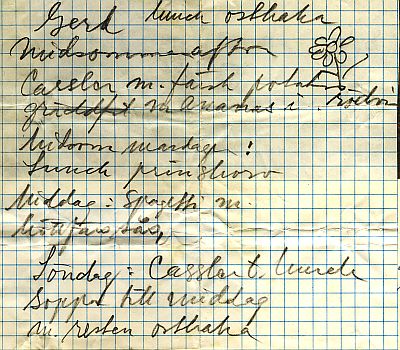 Gerd lunch osthaka
Midsommarafton
Cassler m. färsk potatis
gräddfil m Ananas i. rödvin
Midsom mardagen!
Lunch prinskorv
Middag: Spagetti m.
köttfärssås,
Söndag: Cassler t. lunch
Soppa till middag
m. resten osthaka